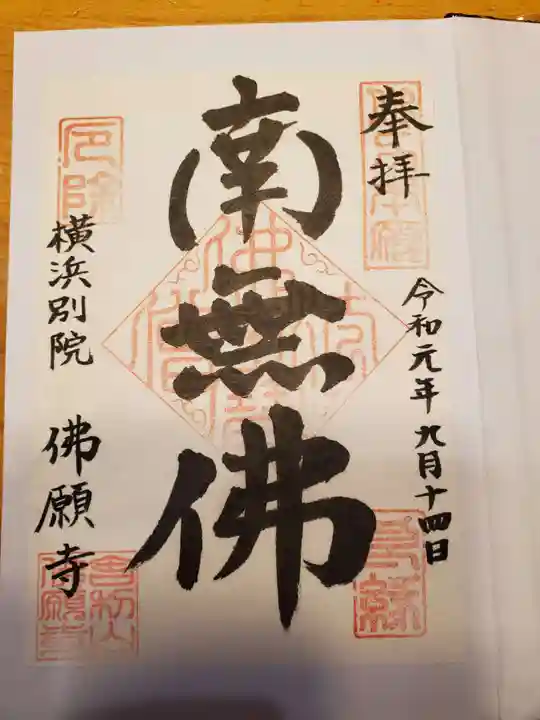 奉拝
令和元年九月十四日
南無佛
横浜別院 佛願寺
厄除